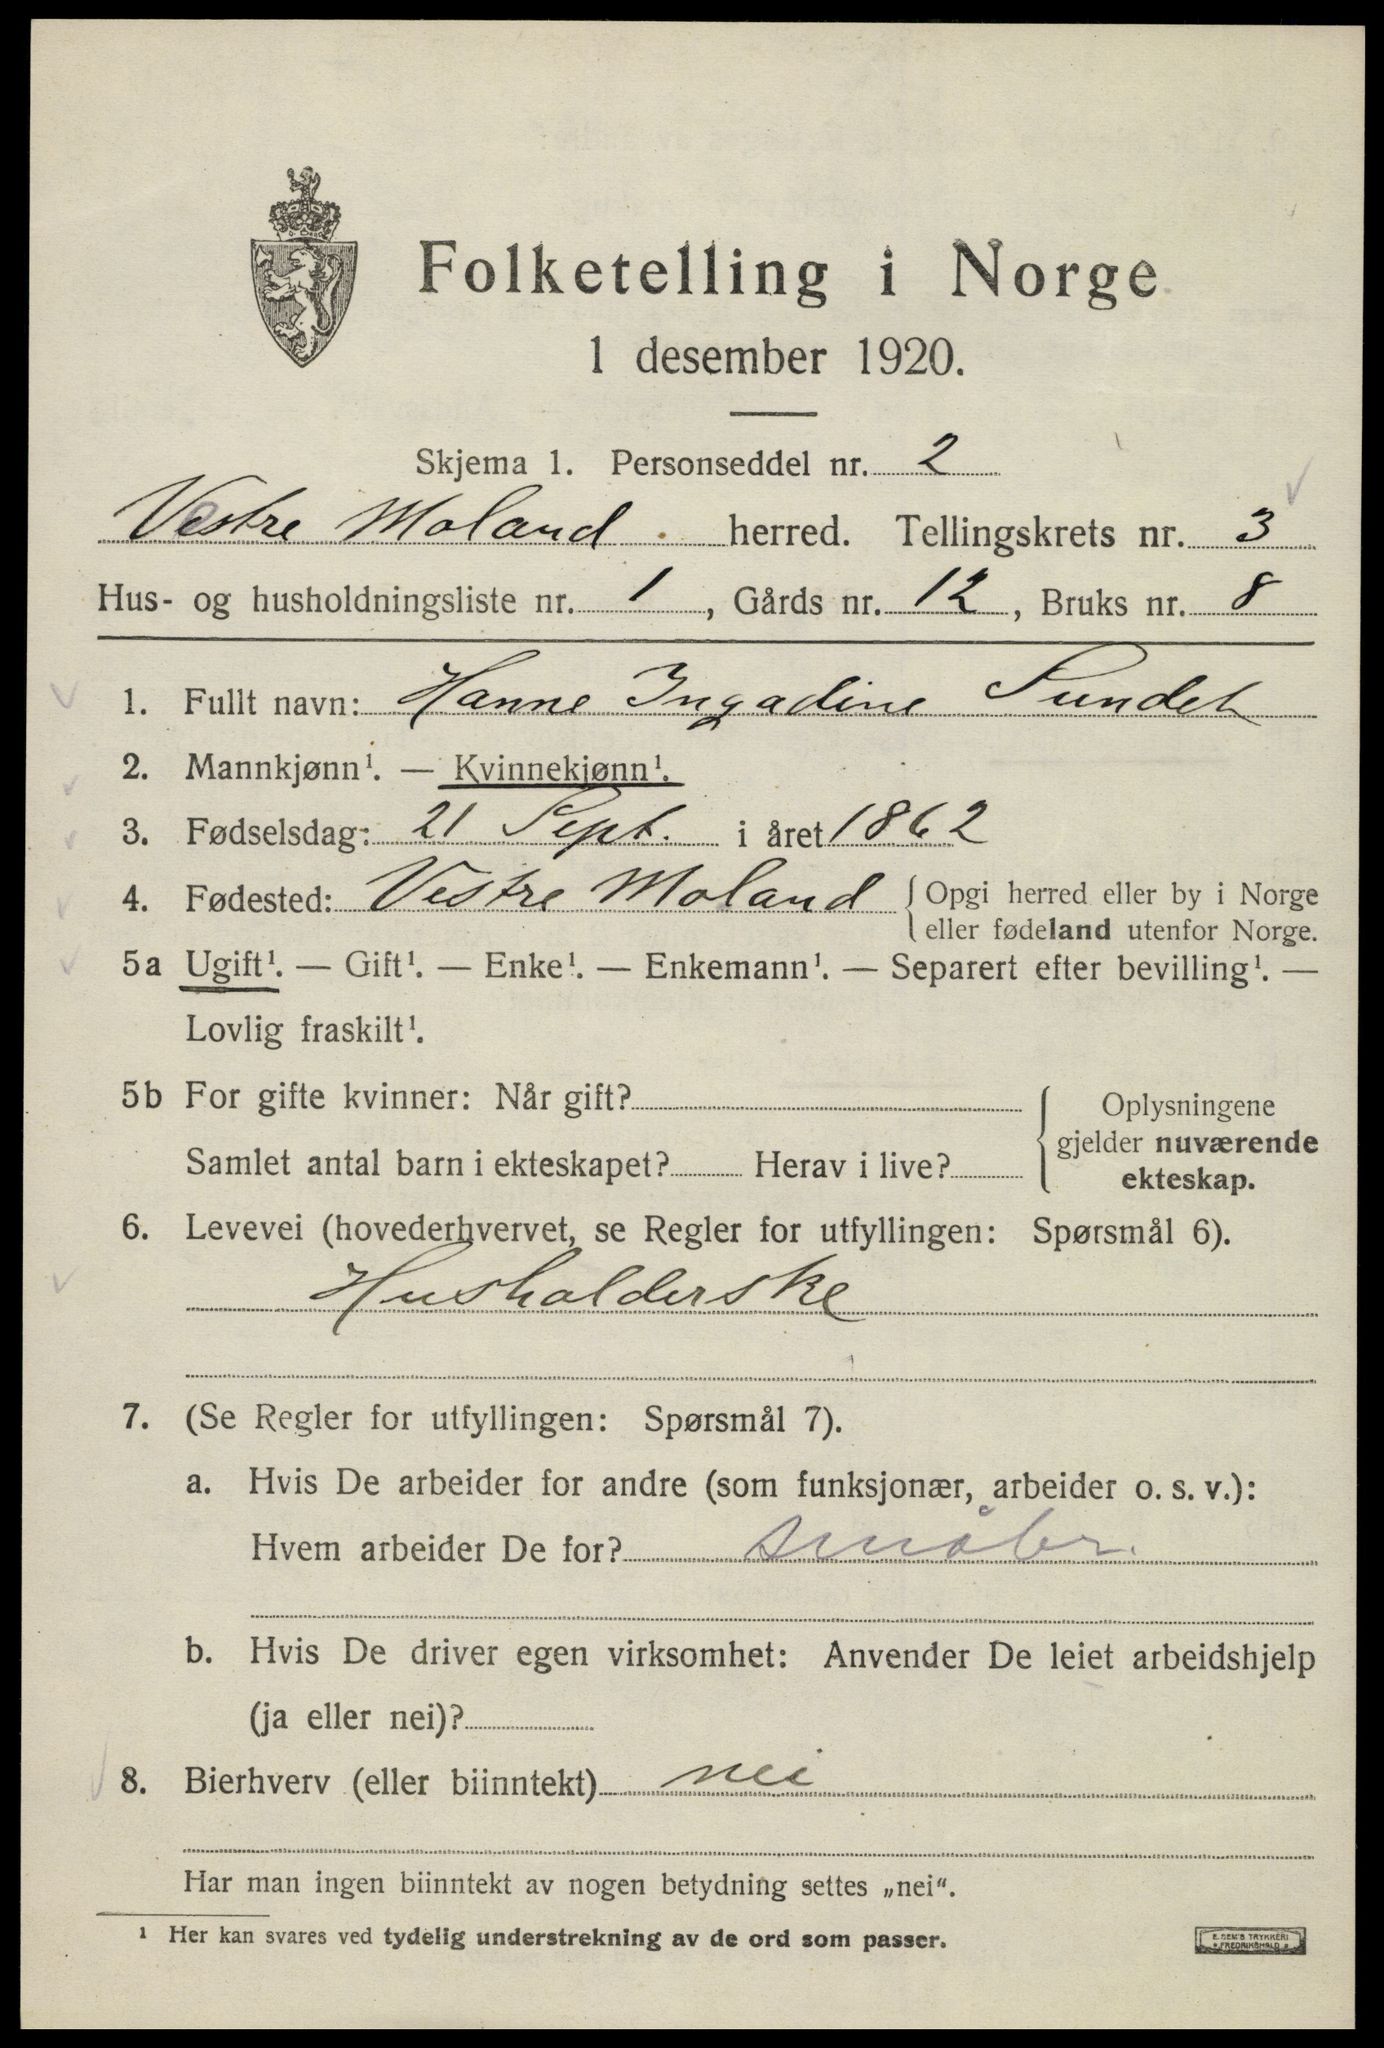 Folketelling i Norge
1 desember 1920.
Skjema 1. Personseddel nr. 2
Vestre Moland herred. Tellingskrets nr. 3
Hus- og husholdningsliste nr. 1, Gårds nr. 12, Bruks nr. 8
1. Fullt navn: Hanne Ingadine Sundet
2. Mannkjønn¹. — Kvinnekjønn¹.
3. Fødselsdag: 21 Sept. i året 1862
4. Fødested: Vestre Moland { Opgi herred eller by i Norge
eller fødeland utenfor Norge.
5a Ugift¹. — Gift¹. — Enke¹. — Enkemann¹. — Separert efter bevilling¹. —
Lovlig fraskilt¹.
5b For gifte kvinner: Når gift?
Samlet antal barn i ekteskapet? Herav i live?
Oplysningene
gjelder nuværende
ekteskap.
6. Levevei (hovederhvervet, se Regler for utfyllingen: Spørsmål 6).
Husholderske
7. (Se Regler for utfyllingen: Spørsmål 7).
a. Hvis De arbeider for andre (som funksjonær, arbeider o. s. v.):
Hvem arbeider De for? småbr.
b. Hvis De driver egen virksomhet: Anvender De leiet arbeidshjelp
(ja eller nei)?
8. Bierhverv (eller biinntekt) nei
Har man ingen biinntekt av nogen betydning settes „nei“.
¹ Her kan svares ved tydelig understrekning av de ord som passer.
E. SEM'S TRYKKERI
FREDRIKSHALD